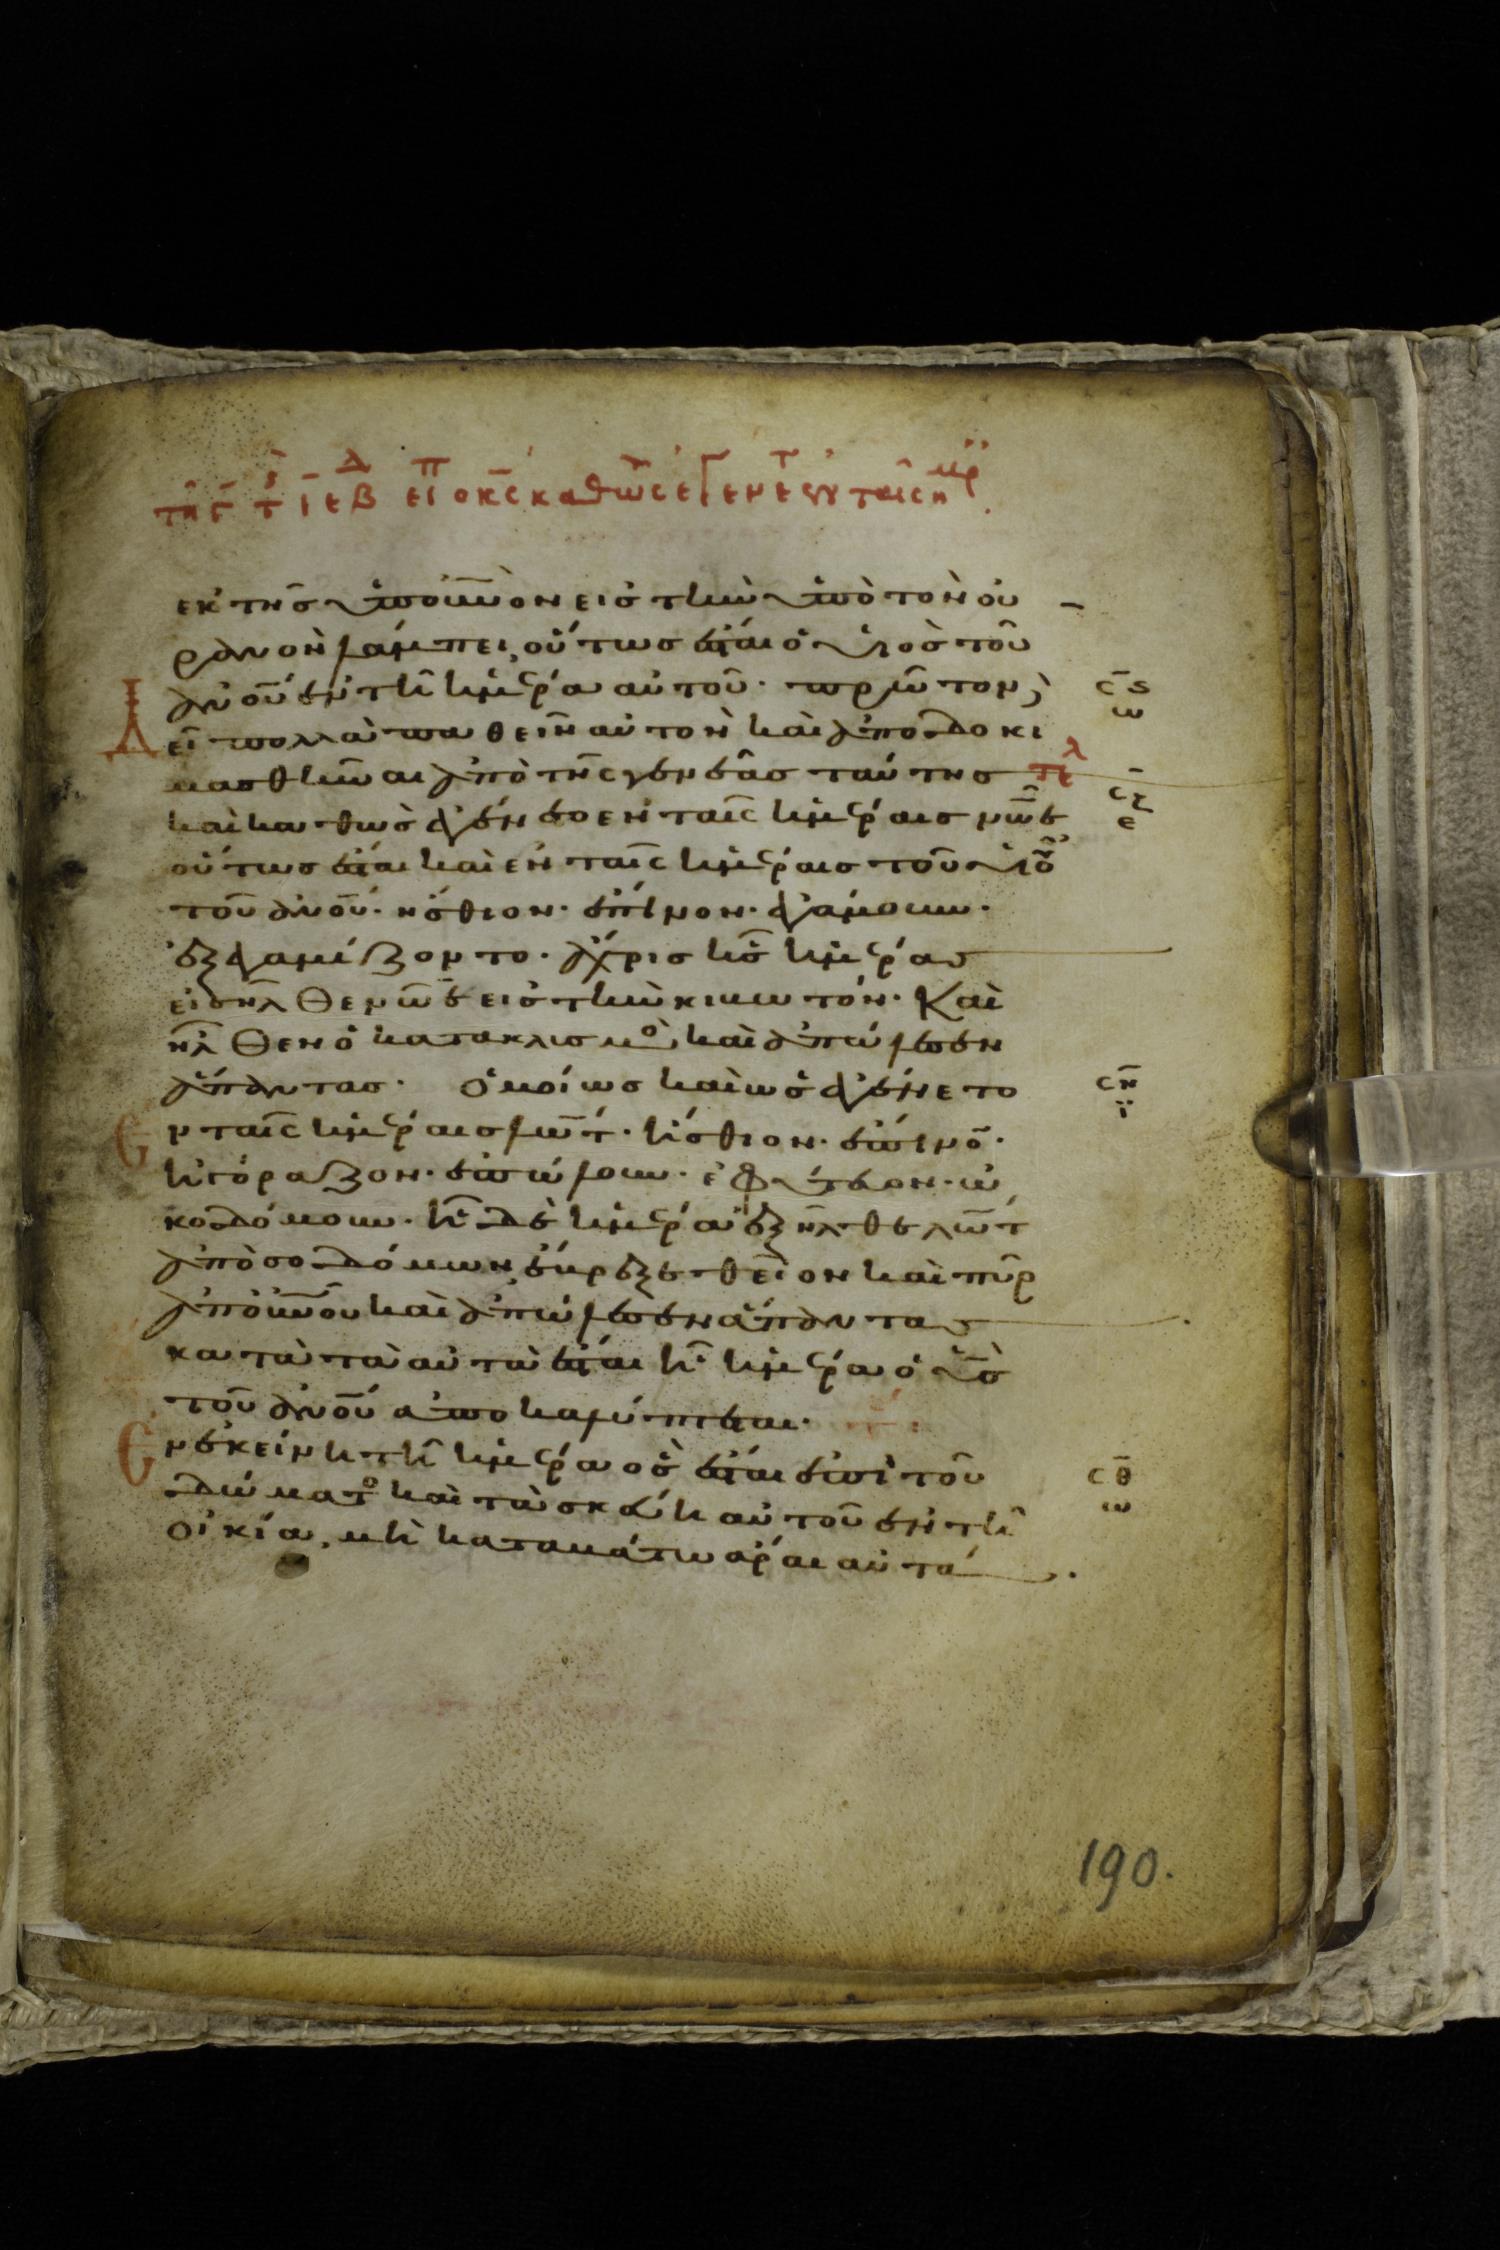 ἐκ τῆς ὑπ' οὐνὸν εἰς τὴν ὑπὸ τὸν οὐ
ρανὸν λάμπει, οὕτως ἔσται ὁ υἱὸς τοῦ
ἀνού ἐν τῆ ἡμέρα αὐτοῦ. πρῶτον
Δεῖ πολλὰ παθεῖν αὐτὸν καὶ ἀποδοκι
μασθῆναι ἀπὸ τῆς γενεᾶς ταύτης τε
καὶ καθὼς ἐγένετο ἐν ταῖς ἡμέραις νῶε
οὕτως ἔσται καὶ ἐν ταῖς ἡμέραις τοῦ υἱοῦ
τοῦ ἀνού. ἤσθιον. ἔπινον. ἐγάμουν.
ἐξεγαμίζοντο. ἄχρις ἧς ἡμέρας
εἰσῆλθε νῶε εἰς τὴν κιβωτόν. Καὶ
ἦλθεν ὁ κατακλισμὸς καὶ ἀπώλεσεν
ἅπαντας. Ὁμοίως καὶ ὡς ἐγένετο
Ἐν ταῖς ἡμέραις λώτ. ἤσθιον. ἔπινον.
ἠγόραζον. ἐπώλουν. ἐφύτευον. ὠ
κοδόμουν. ἧ δὲ ἡμέρα ἐξῆλθε λὼτ
ἀπὸ σοδόμων, ἔβρεξε θεῖον καὶ πῦρ
ἀπ' οὐνοῦ καὶ ἀπώλεσεν ἅπαντας
κατὰ τὰ αὐτὰ ἔσται ἧ ἡμέρα ὁ υἱὸς
τοῦ ἀνού ἀποκαλύπτεται.
Ἐν ἐκείνη τῆ ἡμέρα ὃς ἔσται ἐπὶ τοῦ
δώματος καὶ τὰ σκεύη αὐτοῦ ἐν τῆ
οἰκία, μὴ καταβάτω ἆραι αὐτά.
190.